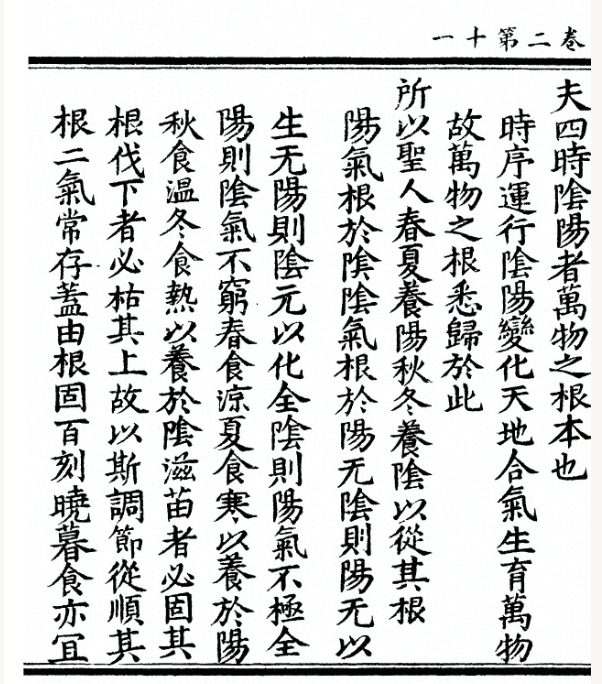 卷二第十一
夫四時陰陽者萬物之根本也
時序運行陰陽變化天地合氣生育萬物
故萬物之根悉歸於此
所以聖人春夏養陽秋冬養陰以從其根
陽氣根於陰陰氣根於陽无陰則陽无以
生无陽則陰元以化全陰則陽氣不極全
陽則陰氣不窮春食涼夏食寒以養於陽
秋食溫冬食熱以養於陰滋苗者必固其
根伐下者必枯其上故以斯調節從順其
根二氣常存蓋由根固百刻曉暮食亦冝